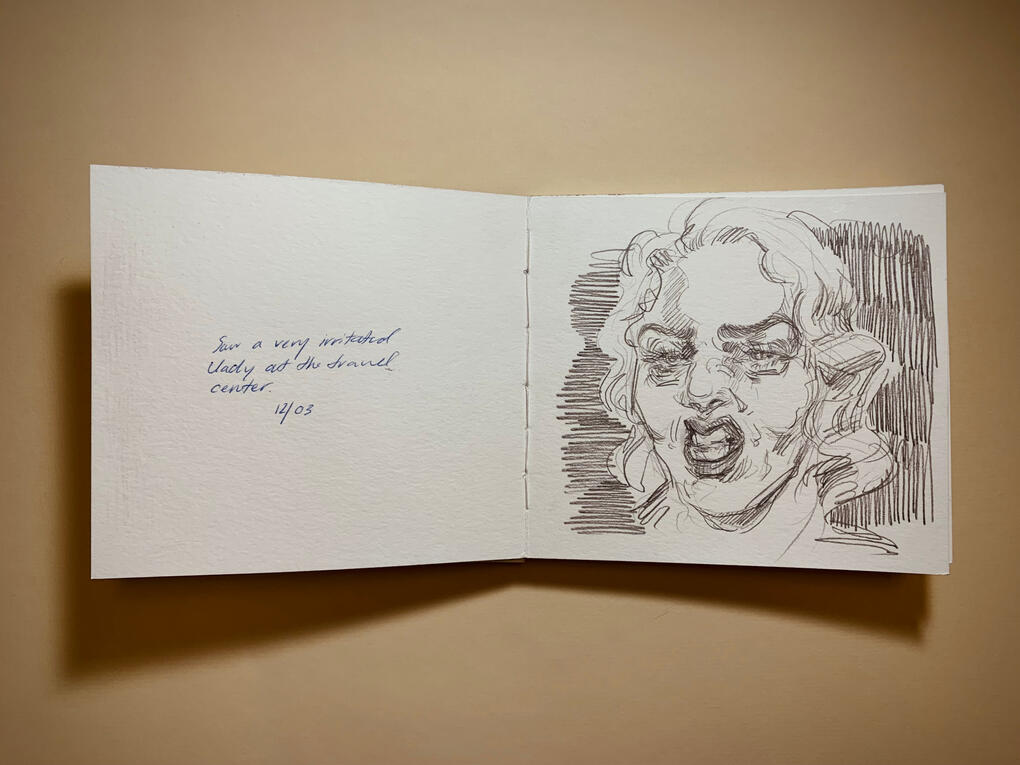 Saw a very irritated
lady at the travel
center.
12/03